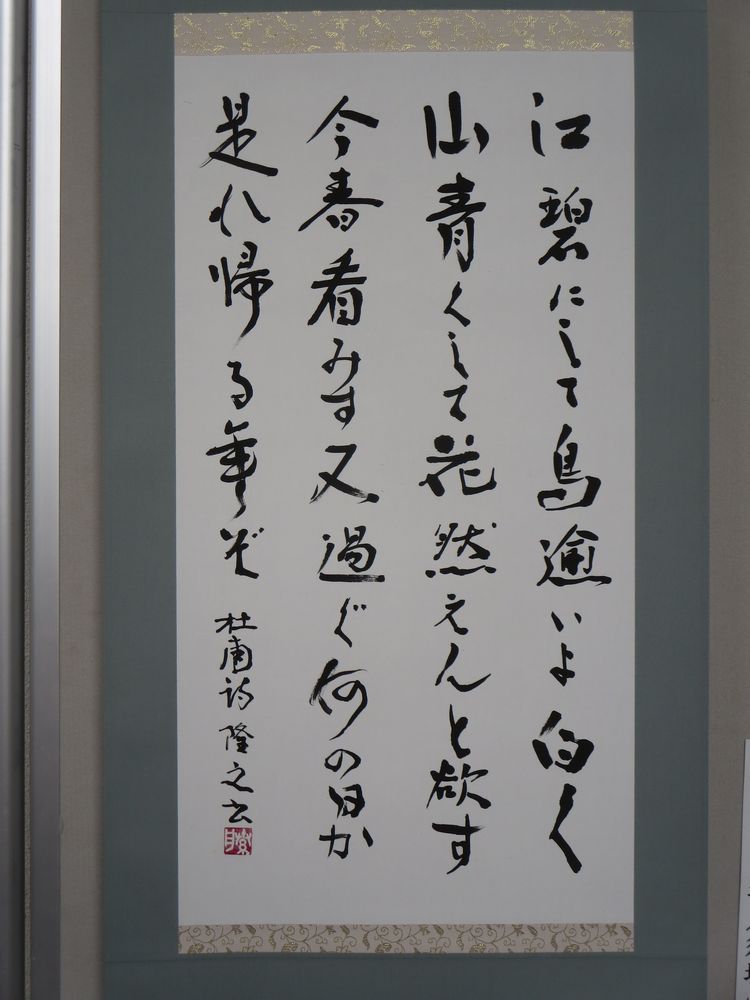 江碧にして鳥逾いよ白く
山青くして花然えんと欲す
今春看みす又過ぐ何の日か
是れ帰る年ぞ
杜甫詩 隆之書